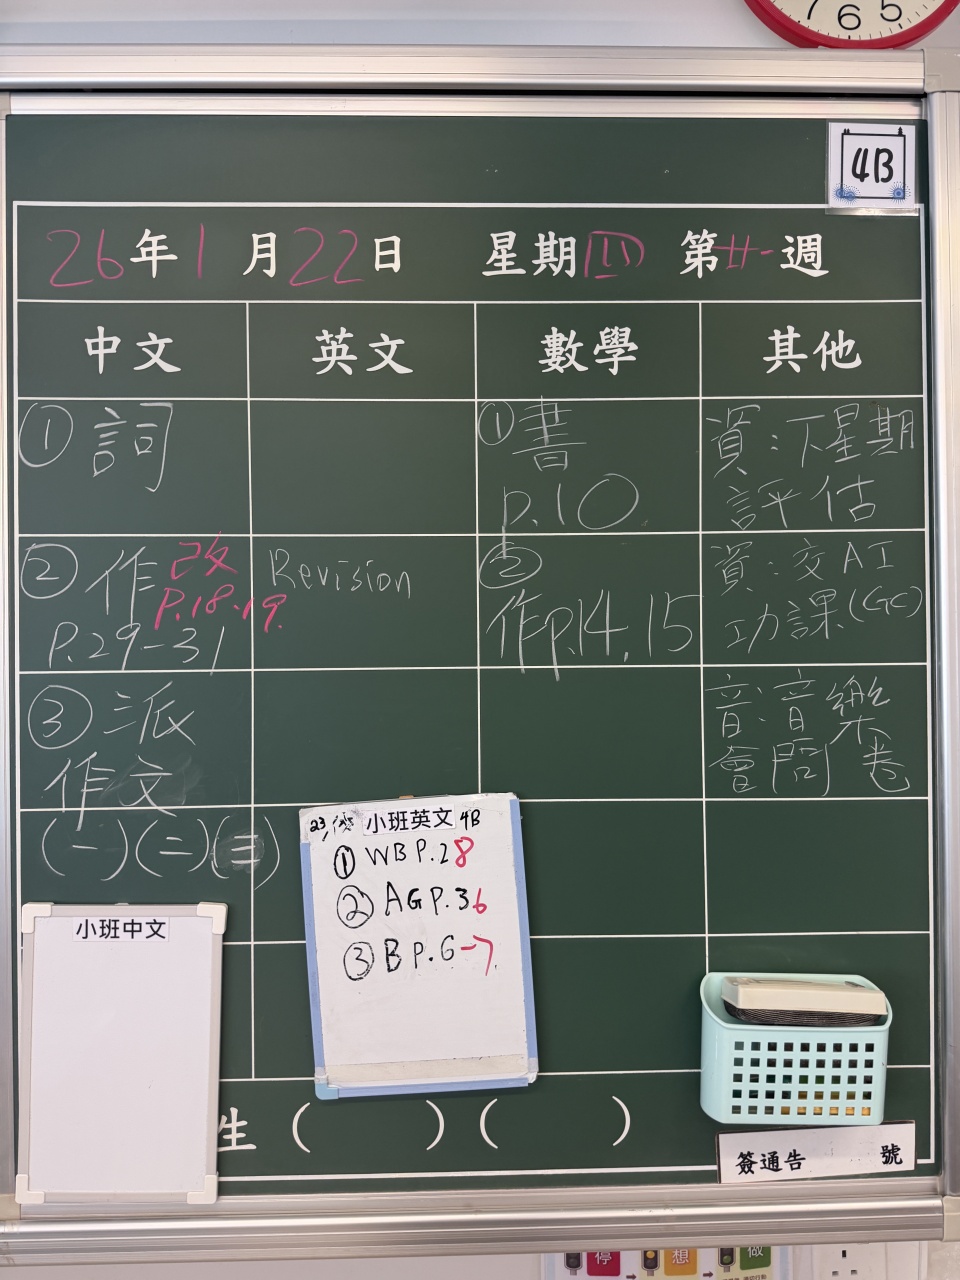 7 6 5
4B
26年1月22日 星期四 第廿一週
中文 英文 數學 其他
① 詞
② 作 改
P.18-19.
P.29-31
③ 派
作文
(一)(二)(三)
Revision
① 書
p.10
②
作p.14, 15
資：下星期
評估
資：交AI
功課(GC)
音：音樂
會問卷
小班英文 4B
① WB P.28
② AG P.36
③ B P.6-7
小班中文
生 ( ) ( )
簽通告 號
停 想 做